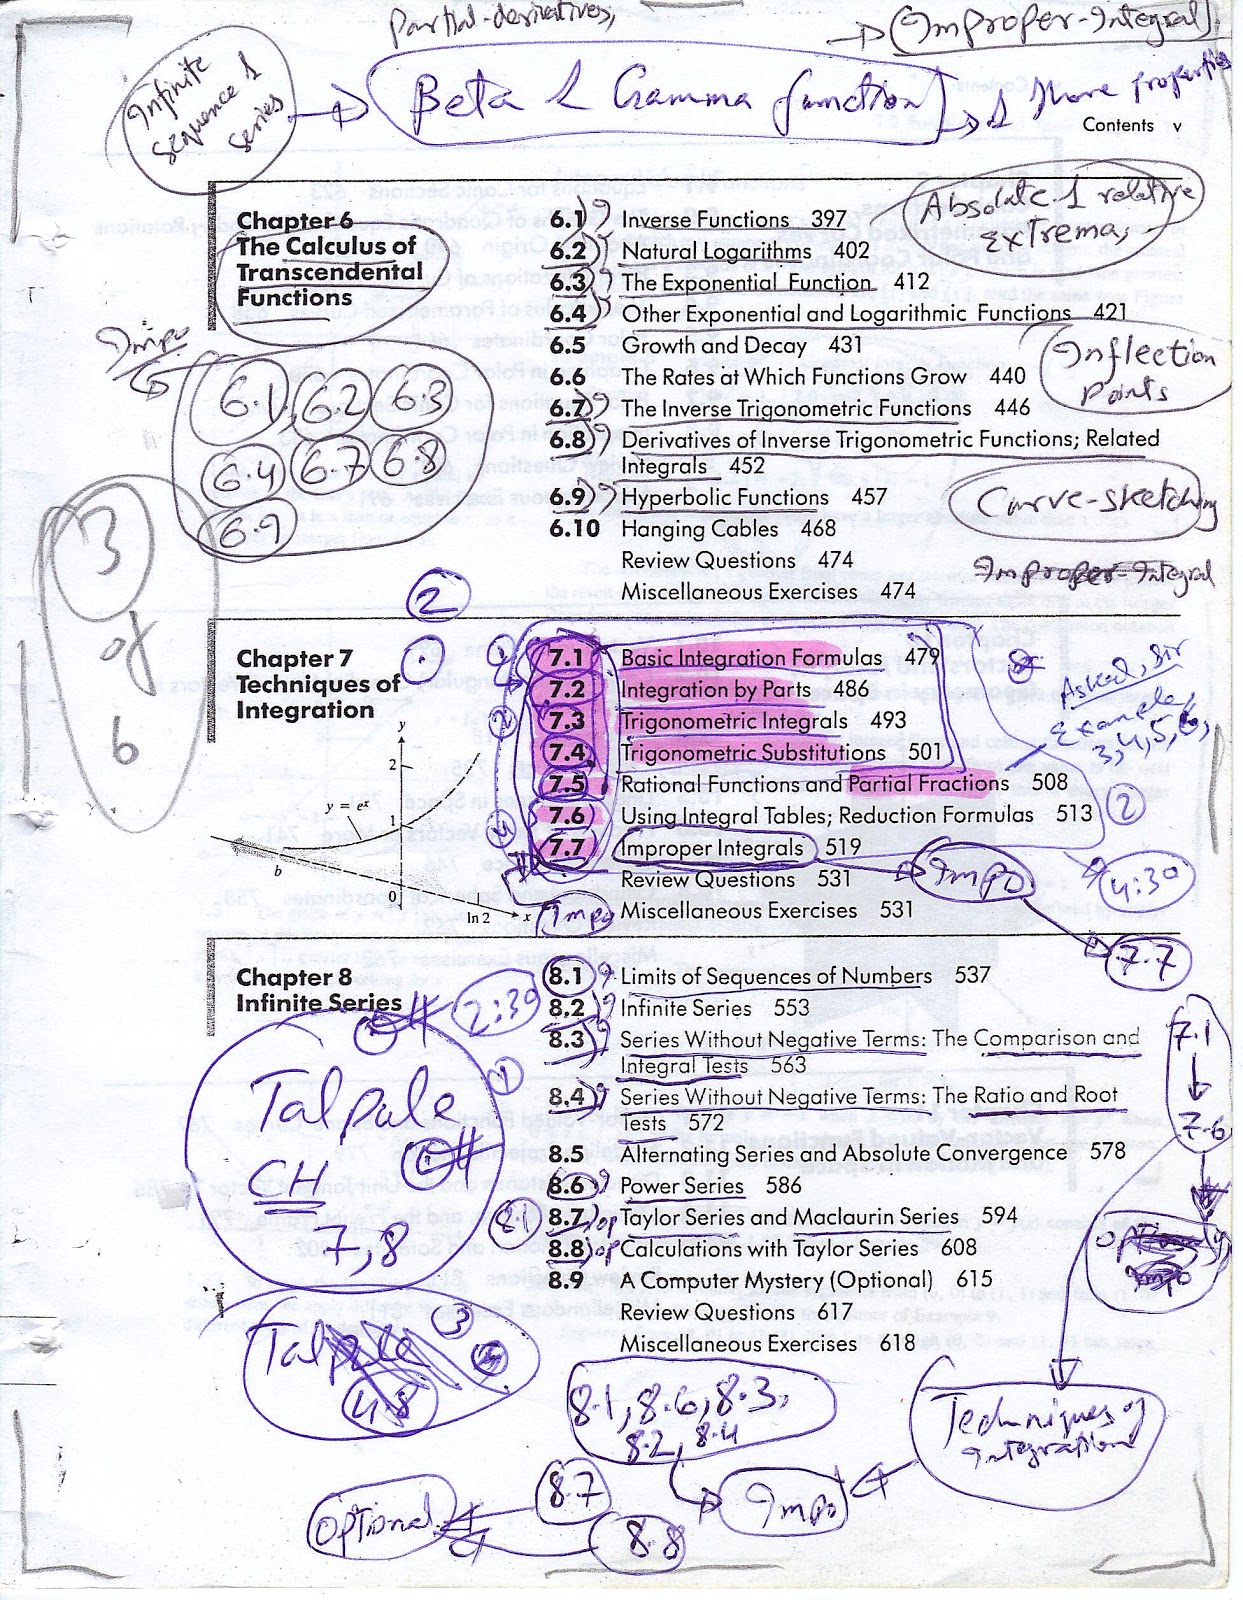 Partial-derivatives,
(Improper-Integral)
Infinite
sequence &
series
Beta & Gamma function
Contents v
Absolute & relative
Extrema,
Chapter 6
The Calculus of
Transcendental
Functions
6.1 Inverse Functions 397
6.2 Natural Logarithms 402
6.3 The Exponential Function 412
6.4 Other Exponential and Logarithmic Functions 421
6.5 Growth and Decay 431
6.6 The Rates at Which Functions Grow 440
6.7 The Inverse Trigonometric Functions 446
6.8 Derivatives of Inverse Trigonometric Functions; Related
Integrals 452
6.9 Hyperbolic Functions 457
6.10 Hanging Cables 468
Review Questions 474
Miscellaneous Exercises 474
Impo
6.1, 6.2 6.3
6.4 6.7 6.8
6.9
Inflection
Points
Curve-sketching
Improper-Integral
3
of
6
2
Chapter 7
Techniques of
Integration
7.1 Basic Integration Formulas 479
7.2 Integration by Parts 486
7.3 Trigonometric Integrals 493
7.4 Trigonometric Substitutions 501
7.5 Rational Functions and Partial Fractions 508
7.6 Using Integral Tables; Reduction Formulas 513
7.7 Improper Integrals 519
Review Questions 531
Miscellaneous Exercises 531
y
2
y = eˣ
1
b
0
ln 2
x
Asked, Sir
Example
3,4,5,6,
2
4:30
Impo
Impo
7.7
Chapter 8
Infinite Series
8.1 Limits of Sequences of Numbers 537
8.2 Infinite Series 553
8.3 Series Without Negative Terms: The Comparison and
Integral Tests 563
8.4 Series Without Negative Terms: The Ratio and Root
Tests 572
8.5 Alternating Series and Absolute Convergence 578
8.6 Power Series 586
8.7 op Taylor Series and Maclaurin Series 594
8.8 op Calculations with Taylor Series 608
8.9 A Computer Mystery (Optional) 615
Review Questions 617
Miscellaneous Exercises 618
2:30
1
Talpule
CH
7,8
8.1
7.1
7.6
3
8.1, 8.6, 8.3,
8.2, 8.4
Techniques of
integration
Impo
8.7
Optional
8.8